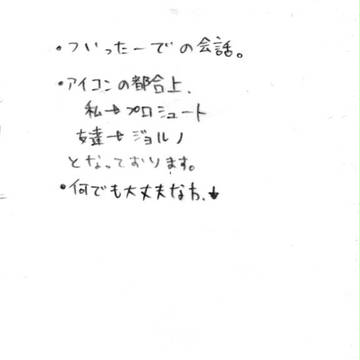 ・ついったーでの会話。
・アイコンの都合上、
私→プロシュート
友達→ジョルノ
となっております。
・何でも大丈夫な方、↓